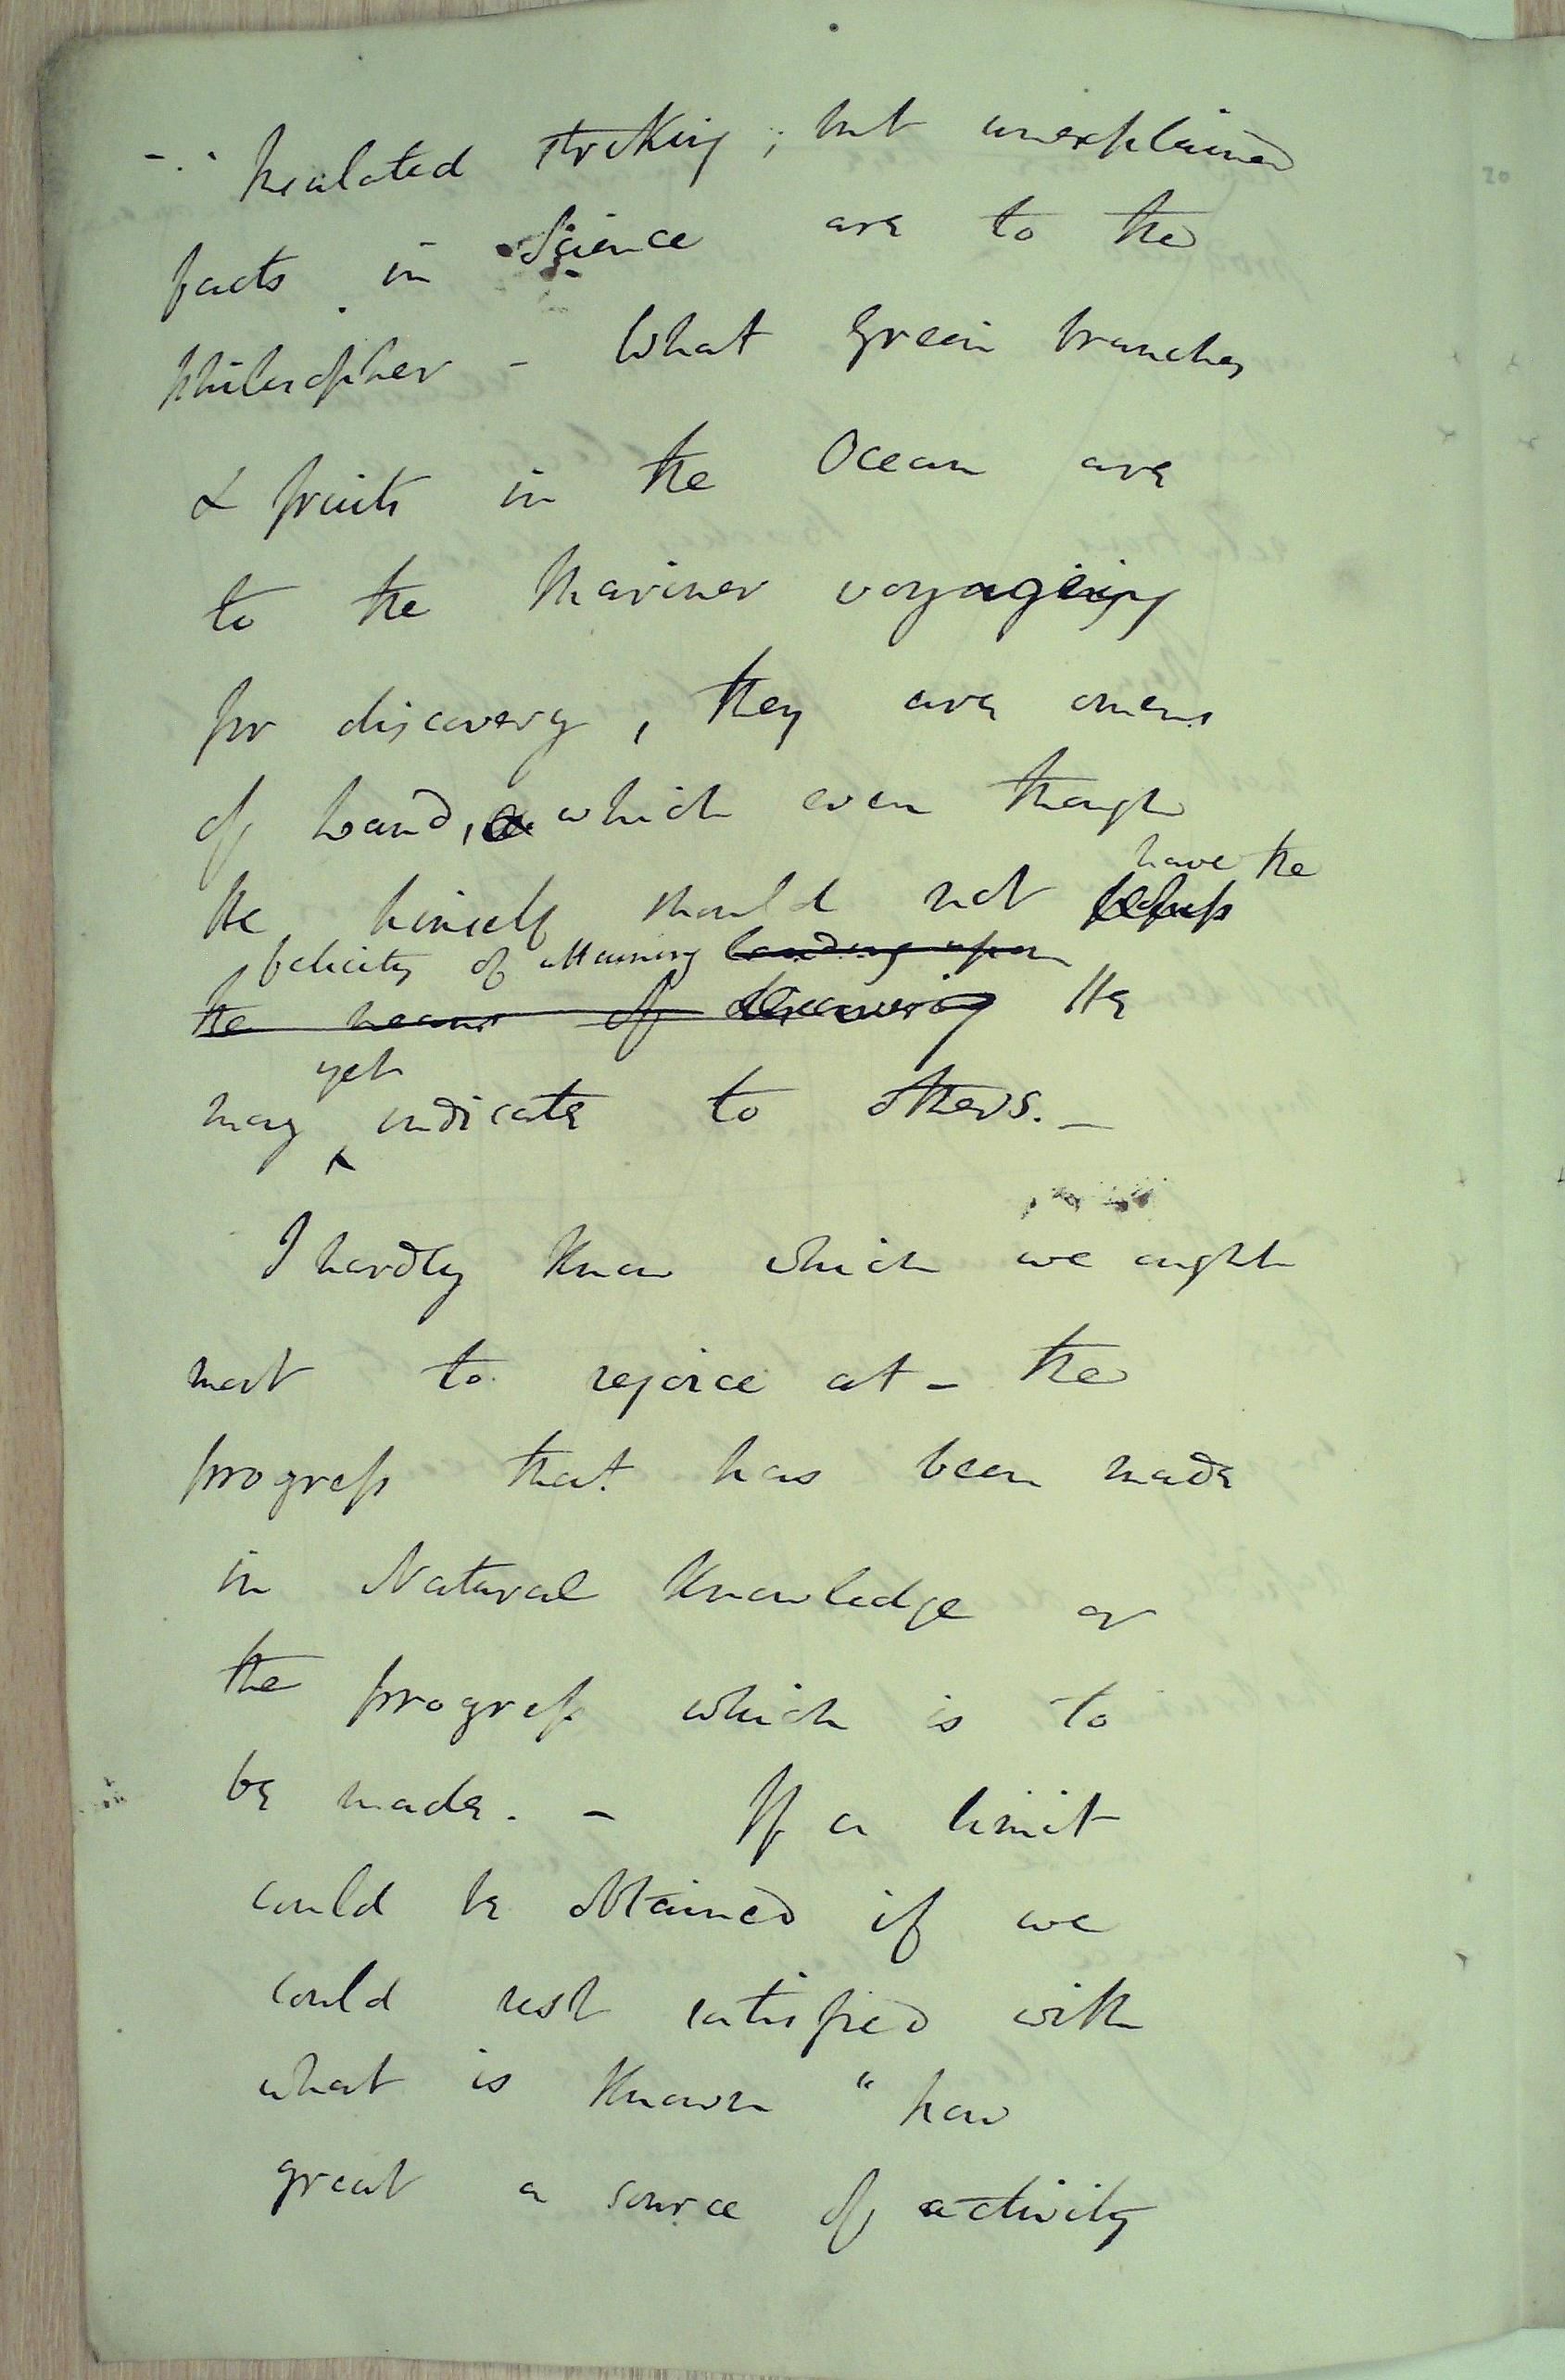 - . . Insulated striking ; but unexplained
facts in Science are to the
Philosopher - What Green branches
& fruits in the Ocean are
to the Mariner voyaging
for discovery, they are omens
of Land, which even though
have the
He himself should not
felicity of attaining landing upon
the means of discovering He
yet
may indicate to others. _
I hardly know which we ought
most to rejoice at - the
progress that has been made
in Natural Knowledge or
the progress which is to
be made. - If a limit
could be obtained if we
could rest satisfied with
what is known " how
great a source of activity